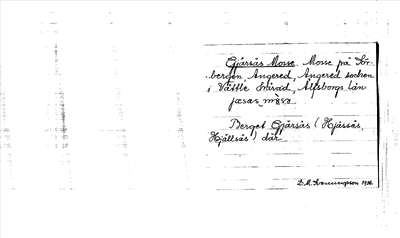 Gjärsås Mosse. Mosse på Sör-
bergen, Angered, Angered socken
i Vättle härad, Älfsborgs län
jæsas mosa
Berget Gjärsås (Hjässås,
Hjällsås) där.
D. M. 1911.